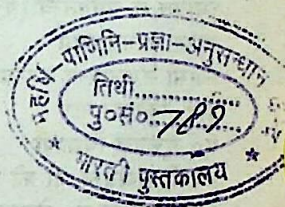 महर्षि-पाणिनि-प्रज्ञा-अनुसन्धान
तिथी..............
पु०सं०.789..........
* भारती पुस्तकालय *